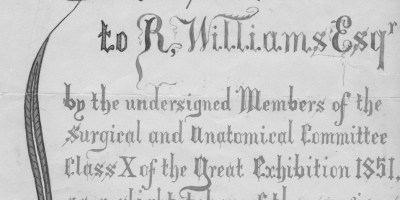 to R. Williams Esqr
by the undersigned Members of the
Surgical and Anatomical Committee
Class X of the Great Exhibition 1851,